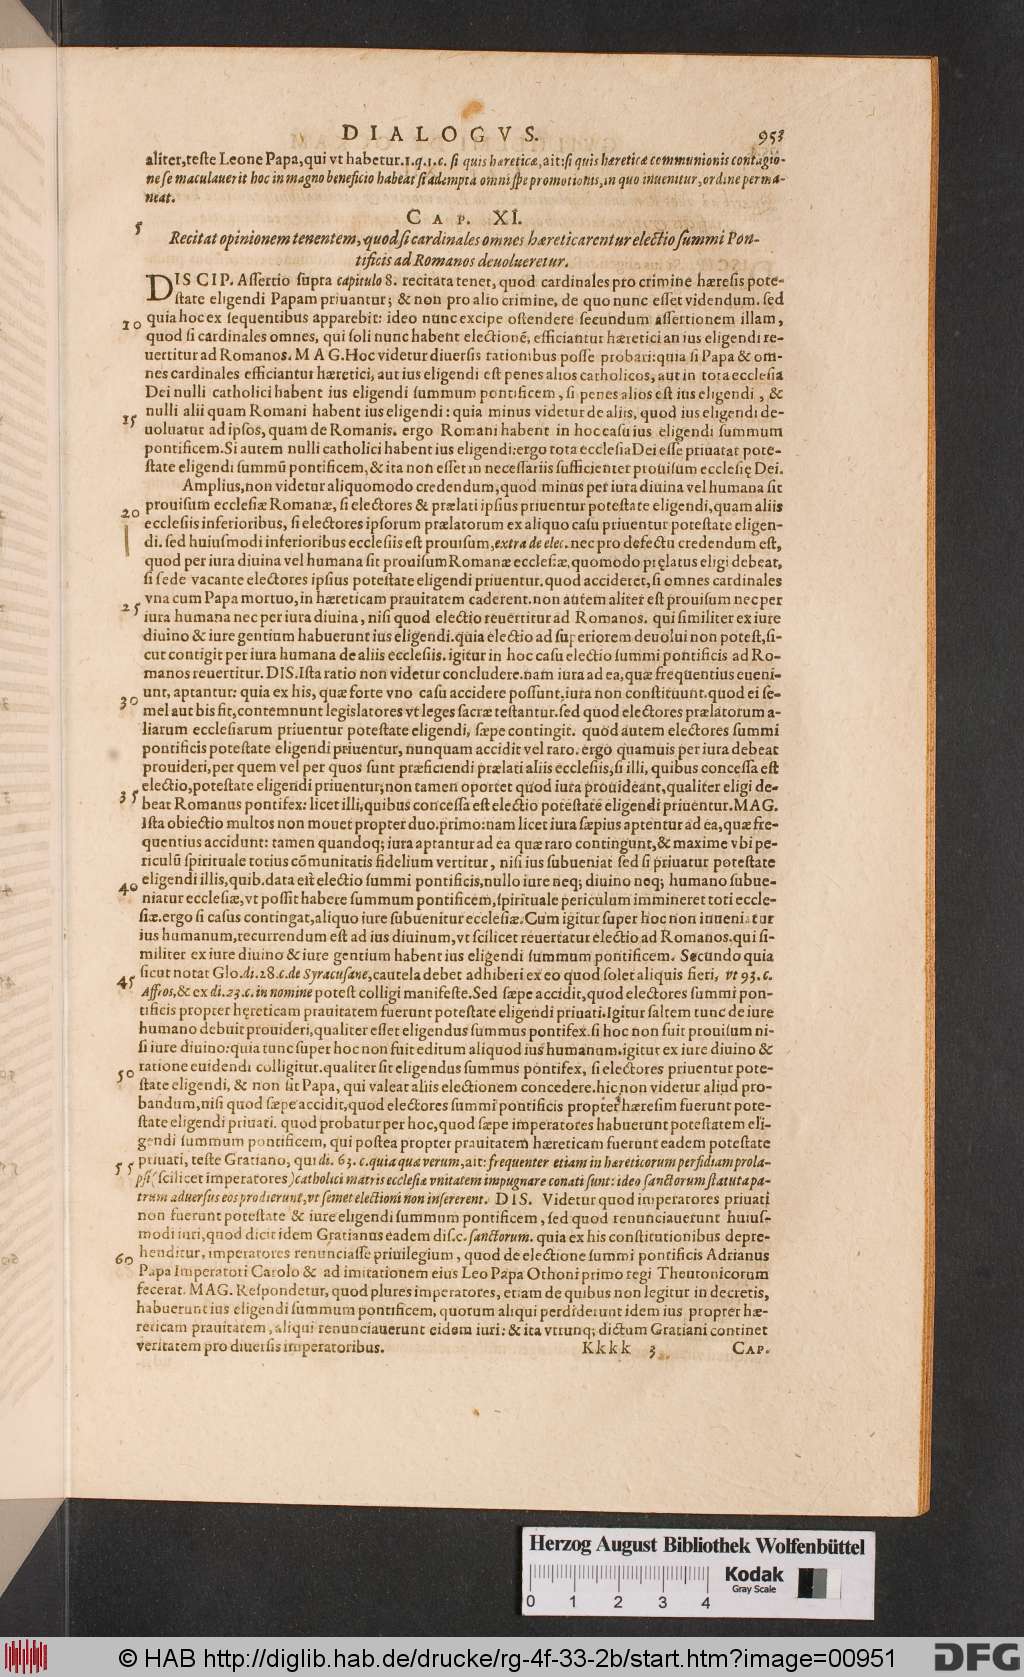 DIALOGVS. 953
aliter, teste Leone Papa, qui vt habetur. 1. q. 1. c. si quis hæreticæ, ait: si quis hæreticæ communionis contagio-
ne se maculauerit hoc in magno beneficio habeat si adempta omni spe promotionis, in quo inuenitur, ordine perma-
neat.
CAP. XI.
5
Recitat opinionem tenentem, quod si cardinales omnes hæreticarentur electio summi Pon-
tificis ad Romanos deuolueretur.
DISCIP. Assertio supra capitulo 8. recitata tenet, quod cardinales pro crimine hæresis pote-
state eligendi Papam priuantur; & non pro alio crimine, de quo nunc esset videndum. sed
10 quia hoc ex sequentibus apparebit: ideo nunc excipe ostendere secundum assertionem illam,
quod si cardinales omnes, qui soli nunc habent electionē, efficiantur hæretici an ius eligendi re-
uertitur ad Romanos. MAG. Hoc videtur diuersis rationibus posse probari: quia si Papa & om-
nes cardinales efficiantur hæretici, aut ius eligendi est penes alios catholicos, aut in tota ecclesia
Dei nulli catholici habent ius eligendi summum pontificem, si penes alios est ius eligendi, &
15 nulli alii quam Romani habent ius eligendi: quia minus videtur de aliis, quod ius eligendi de-
uoluatur ad ipsos, quam de Romanis. ergo Romani habent in hoc casu ius eligendi summum
pontificem. Si autem nulli catholici habent ius eligendi: ergo tota ecclesia Dei esse priuatat pote-
state eligendi summū pontificem, & ita non esset in necessariis sufficienter prouisum ecclesię Dei.
Amplius, non videtur aliquomodo credendum, quod minus per iura diuina vel humana sit
20 prouisum ecclesiæ Romanæ, si electores & prælati ipsius priuentur potestate eligendi, quam aliis
ecclesiis inferioribus, si electores ipsorum prælatorum ex aliquo casu priuentur potestate eligen-
di. sed huiusmodi inferioribus ecclesiis est prouisum, extra de elec. nec pro defectu credendum est,
quod per iura diuina vel humana sit prouisum Romanæ ecclesiæ, quomodo pręlatus eligi debeat,
si sede vacante electores ipsius potestate eligendi priuentur. quod accideret, si omnes cardinales
25 vna cum Papa mortuo, in hæreticam prauitatem caderent. non autem aliter est prouisum nec per
iura humana nec per iura diuina, nisi quod electio reuertitur ad Romanos. qui similiter ex iure
diuino & iure gentium habuerunt ius eligendi. quia electio ad superiorem deuolui non potest, si-
cut contigit per iura humana de aliis ecclesiis. igitur in hoc casu electio summi pontificis ad Ro-
manos reuertitur. DIS. Ista ratio non videtur concludere. nam iura ad ea, quæ frequentius eueni-
30 unt, aptantur: quia ex his, quæ forte vno casu accidere possunt, iura non constituunt. quod ei se-
mel aut bis fit, contemnunt legislatores vt leges sacræ testantur. sed quod electores prælatorum a-
liarum ecclesiarum priuentur potestate eligendi, sæpe contingit. quod autem electores summi
pontificis potestate eligendi priuentur, nunquam accidit vel raro. ergo quamuis per iura debeat
prouideri, per quem vel per quos sunt præficiendi prælati aliis ecclesiis, si illi, quibus concessa est
35 electio, potestate eligendi priuentur; non tamen oportet quod iura prouideant, qualiter eligi de-
beat Romanus pontifex: licet illi, quibus concessa est electio potestate eligendi priuentur. MAG.
Ista obiectio multos non mouet propter duo. primo: nam licet iura sæpius aptentur ad ea, quæ fre-
quentius accidunt: tamen quandoq; iura aptantur ad ea quæ raro contingunt, & maxime vbi pe-
riculū spirituale totius cōmunitatis fidelium vertitur, nisi ius subueniat sed si priuatur potestate
40 eligendi illis, quib. data est electio summi pontificis, nullo iure neq; diuino neq; humano subue-
niatur ecclesiæ, vt possit habere summum pontificem, spirituale periculum immineret toti eccle-
siæ. ergo si casus contingat, aliquo iure subuenitur ecclesiæ. Cum igitur super hoc non inueniatur
ius humanum, recurrendum est ad ius diuinum, vt scilicet reuertatur electio ad Romanos. qui si-
militer ex iure diuino & iure gentium habent ius eligendi summum pontificem. Secundo quia
45 sicut notat Glo. di. 28. c. de Syracusane, cautela debet adhiberi ex eo quod solet aliquis fieri, vt 93. c.
Affros, & ex di. 23. c. in nomine potest colligi manifeste. Sed sæpe accidit, quod electores summi pon-
tificis propter hęreticam prauitatem fuerunt potestate eligendi priuati. Igitur saltem tunc de iure
humano debuit prouideri, qualiter esset eligendus summus pontifex. si hoc non fuit prouisum ni-
si iure diuino: quia tunc super hoc non fuit editum aliquod ius humanum. igitur ex iure diuino &
50 ratione euidendi colligitur. qualiter sit eligendus summus pontifex, si electores priuentur pote-
state eligendi, & non sit Papa, qui valeat aliis electionem concedere. hic non videtur aliud pro-
bandum, nisi quod sæpe accidit, quod electores summi pontificis propter hæresim fuerunt pote-
state eligendi priuati. quod probatur per hoc, quod sæpe imperatores habuerunt potestatem eli-
gendi summum pontificem, qui postea propter prauitatem hæreticam fuerunt eadem potestate
55 priuati, teste Gratiano, qui di. 63. c. quia qua verum, ait: frequenter etiam in hæreticorum perfidiam prola-
psi (scilicet imperatores) catholici matris ecclesiæ vnitatem impugnare conati sunt: ideo sanctorum statuta pa-
trum aduersus eos prodierunt, vt semet electioni non insererent. DIS. Videtur quod imperatores priuati
non fuerunt potestate & iure eligendi summum pontificem, sed quod renunciauerunt huius-
modi iuri, quod dicit idem Gratianus eadem dis. c. sanctorum. quia ex his constitutionibus depre-
60 henditur, imperatores renunciasse priuilegium, quod de electione summi pontificis Adrianus
Papa Imperatori Carolo & ad imitationem eius Leo Papa Othoni primo regi Theutonicorum
fecerat. MAG. Respondetur, quod plures imperatores, etiam de quibus non legitur in decretis,
habuerunt ius eligendi summum pontificem, quorum aliqui perdiderunt idem ius propter hæ-
reticam prauitatem, aliqui renunciauerunt eidem iuri: & ita vtrunq; dictum Gratiani continet
veritatem pro diuersis imperatoribus. Kkkk 3 CAP.
Herzog August Bibliothek Wolfenbüttel
Kodak
Gray Scale
0 1 2 3 4
© HAB http://diglib.hab.de/drucke/rg-4f-33-2b/start.htm?image=00951
DFG